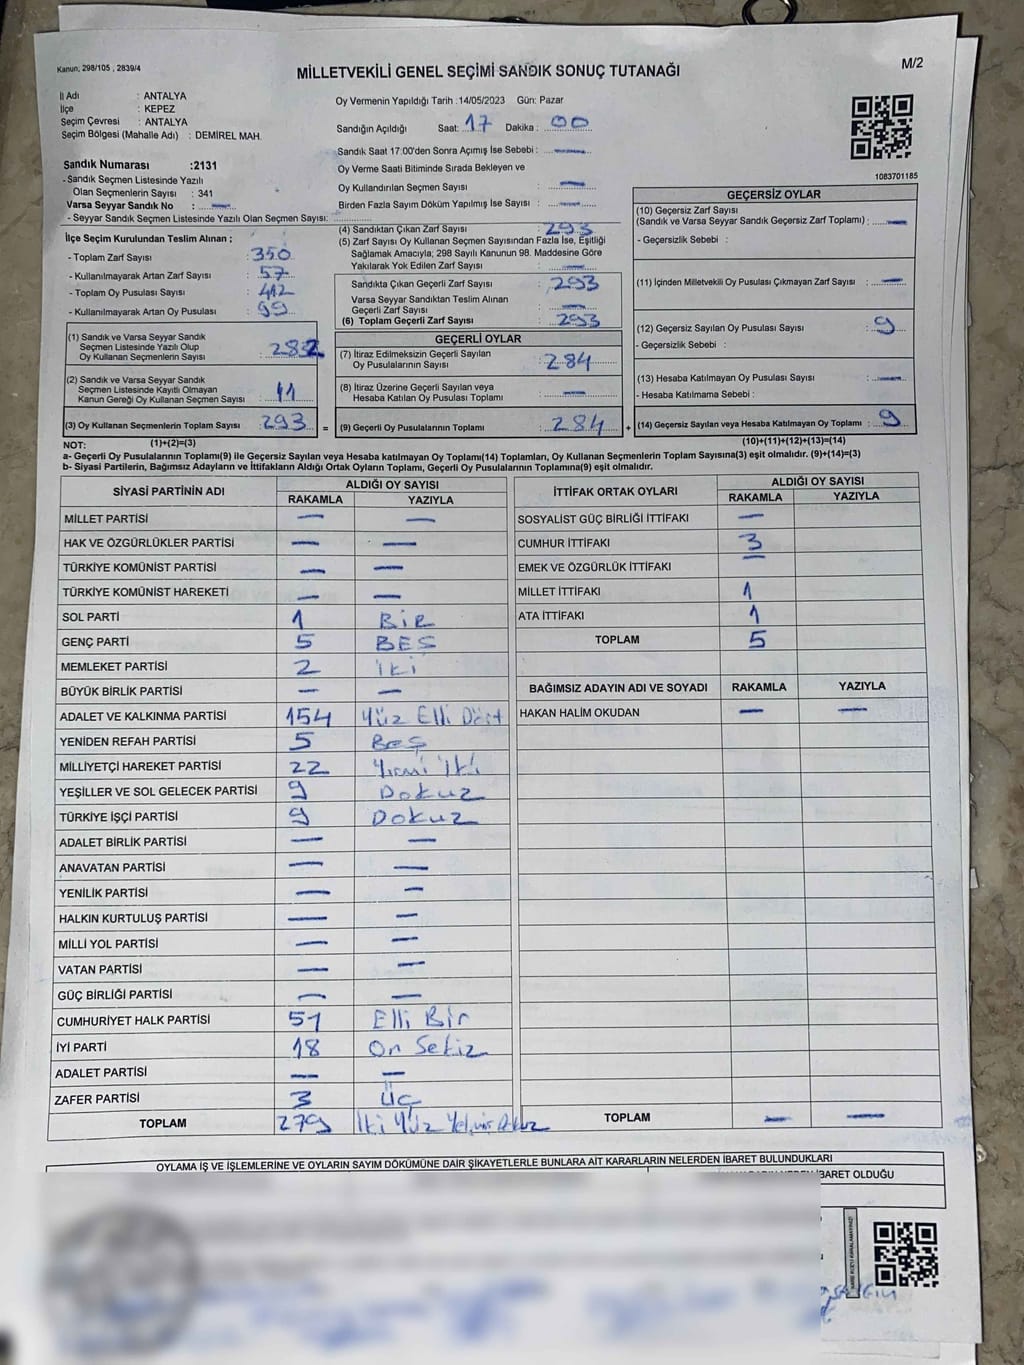 Kanun, 298/105 , 2839/4
MİLLETVEKİLİ GENEL SEÇİMİ SANDIK SONUÇ TUTANAĞI
M/2
İl Adı : ANTALYA
İlçe : KEPEZ
Seçim Çevresi : ANTALYA
Seçim Bölgesi (Mahalle Adı) : DEMİREL MAH.
Sandık Numarası :2131
- Sandık Seçmen Listesinde Yazılı
Olan Seçmenlerin Sayısı : 341
Varsa Seyyar Sandık No : —
- Seyyar Sandık Seçmen Listesinde Yazılı Olan Seçmen Sayısı:
Oy Vermenin Yapıldığı Tarih :14/05/2023 Gün: Pazar
Sandığın Açıldığı Saat: 17 Dakika : 00
Sandık Saat 17:00'den Sonra Açımış İse Sebebi : —
Oy Verme Saati Bitiminde Sırada Bekleyen ve
Oy Kullandırılan Seçmen Sayısı : —
Birden Fazla Sayım Döküm Yapılmış İse Sayısı : —
1083701185
İlçe Seçim Kurulundan Teslim Alınan ;
- Toplam Zarf Sayısı : 350
- Kullanılmayarak Artan Zarf Sayısı : 57
- Toplam Oy Pusulası Sayısı : 412
- Kullanılmayarak Artan Oy Pusulası : 99
(1) Sandık ve Varsa Seyyar Sandık
Seçmen Listesinde Yazılı Olup
Oy Kullanan Seçmenlerin Sayısı : 282
(2) Sandık ve Varsa Seyyar Sandık
Seçmen Listesinde Kayıtlı Olmayan
Kanun Gereği Oy Kullanan Seçmen Sayısı : 11
(3) Oy Kullanan Seçmenlerin Toplam Sayısı : 293 =
(4) Sandıktan Çıkan Zarf Sayısı : 293
(5) Zarf Sayısı Oy Kullanan Seçmen Sayısından Fazla İse, Eşitliği
Sağlamak Amacıyla; 298 Sayılı Kanunun 98. Maddesine Göre
Yakılarak Yok Edilen Zarf Sayısı : —
Sandıkta Çıkan Geçerli Zarf Sayısı : 293
Varsa Seyyar Sandıktan Teslim Alınan
Geçerli Zarf Sayısı : —
(6) Toplam Geçerli Zarf Sayısı : 293
GEÇERLİ OYLAR
(7) İtiraz Edilmeksizin Geçerli Sayılan
Oy Pusulalarının Sayısı : 284
(8) İtiraz Üzerine Geçerli Sayılan veya
Hesaba Katılan Oy Pusulası Toplamı : —
(9) Geçerli Oy Pusulalarının Toplamı : 284 +
GEÇERSİZ OYLAR
(10) Geçersiz Zarf Sayısı
(Sandık ve Varsa Seyyar Sandık Geçersiz Zarf Toplamı) : —
- Geçersizlik Sebebi :
(11) İçinden Milletvekili Oy Pusulası Çıkmayan Zarf Sayısı : —
(12) Geçersiz Sayılan Oy Pusulası Sayısı : 9
- Geçersizlik Sebebi :
(13) Hesaba Katılmayan Oy Pusulası Sayısı : —
- Hesaba Katılmama Sebebi :
(14) Geçersiz Sayılan veya Hesaba Katılmayan Oy Toplamı : 9
NOT: (1)+(2)=(3) (10)+(11)+(12)+(13)=(14)
a- Geçerli Oy Pusulalarının Toplamı(9) ile Geçersiz Sayılan veya Hesaba Katılmayan Oy Toplamı(14) Toplamları, Oy Kullanan Seçmenlerin Toplam Sayısına(3) eşit olmalıdır. (9)+(14)=(3)
b- Siyasi Partilerin, Bağımsız Adayların ve İttifakların Aldığı Ortak Oyların Toplamı, Geçerli Oy Pusulalarının Toplamına(9) eşit olmalıdır.
SİYASİ PARTİNİN ADI ALDIĞI OY SAYISI
RAKAMLA YAZIYLA
MİLLET PARTİSİ — —
HAK VE ÖZGÜRLÜKLER PARTİSİ — —
TÜRKİYE KOMÜNİST PARTİSİ — —
TÜRKİYE KOMÜNİST HAREKETİ — —
SOL PARTİ 1 BİR
GENÇ PARTİ 5 BES
MEMLEKET PARTİSİ 2 İki
BÜYÜK BİRLİK PARTİSİ — —
ADALET VE KALKINMA PARTİSİ 154 Yüz Elli Dört
YENİDEN REFAH PARTİSİ 5 Beş
MİLLİYETÇİ HAREKET PARTİSİ 22 Yirmi İki
YEŞİLLER VE SOL GELECEK PARTİSİ 9 Dokuz
TÜRKİYE İŞÇİ PARTİSİ 9 Dokuz
ADALET BİRLİK PARTİSİ — —
ANAVATAN PARTİSİ — —
YENİLİK PARTİSİ — —
HALKIN KURTULUŞ PARTİSİ — —
MİLLİ YOL PARTİSİ — —
VATAN PARTİSİ — —
GÜÇ BİRLİĞİ PARTİSİ — —
CUMHURİYET HALK PARTİSİ 51 Elli Bir
İYİ PARTİ 18 On Sekiz
ADALET PARTİSİ — —
ZAFER PARTİSİ 3 Üç
TOPLAM 279 İki Yüz Yetmiş Dokuz
İTTİFAK ORTAK OYLARI ALDIĞI OY SAYISI
RAKAMLA YAZIYLA
SOSYALİST GÜÇ BİRLİĞİ İTTİFAKI —
CUMHUR İTTİFAKI 3
EMEK VE ÖZGÜRLÜK İTTİFAKI —
MİLLET İTTİFAKI 1
ATA İTTİFAKI 1
TOPLAM 5
BAĞIMSIZ ADAYIN ADI VE SOYADI RAKAMLA YAZIYLA
HAKAN HALİM OKUDAN — —
TOPLAM — —
OYLAMA İŞ VE İŞLEMLERİNE VE OYLARIN SAYIM DÖKÜMÜNE DAİR ŞİKAYETLERLE BUNLARA AİT KARARLARIN NELERDEN İBARET BULUNDUKLARI
İBARET OLDUĞU